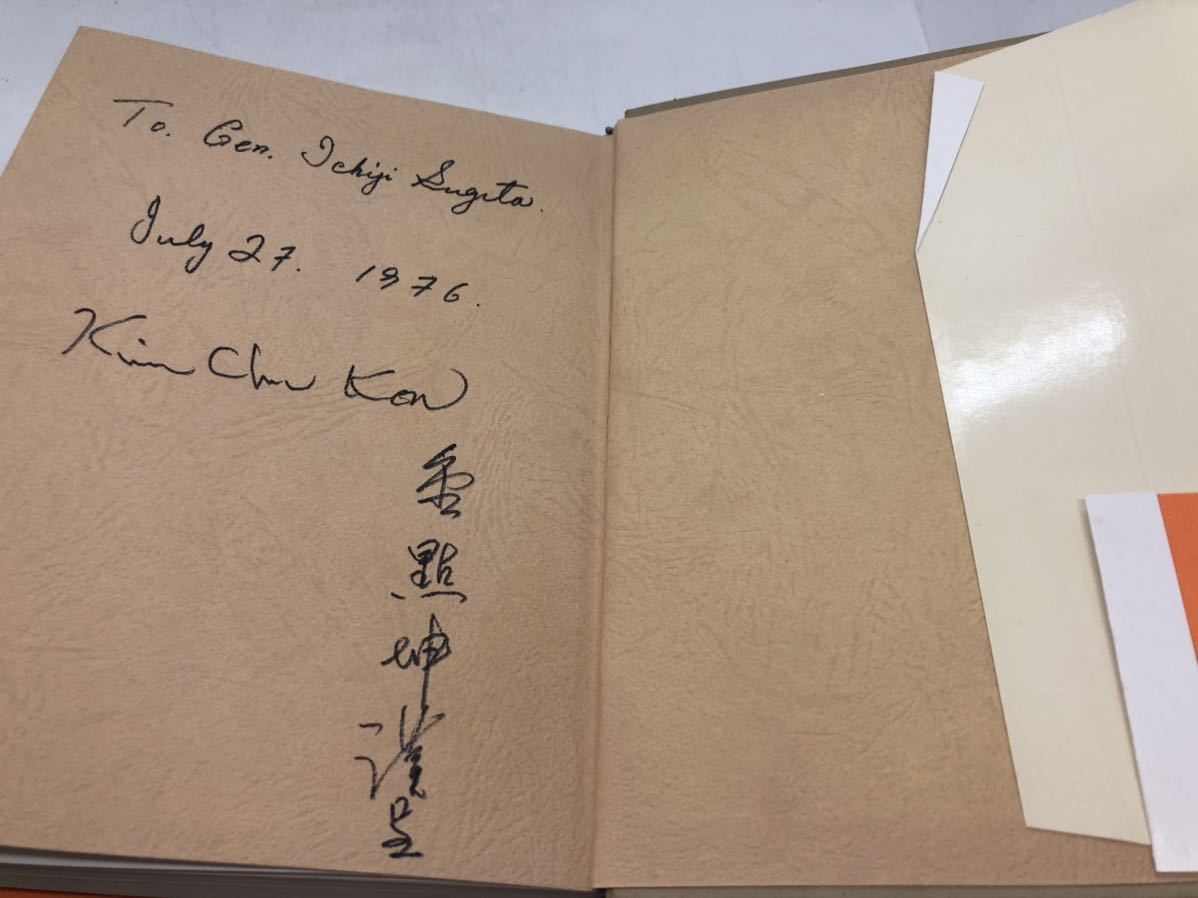 To. Gen. Ichiji Sugita.
July 27. 1976.
Kim Chum Kon
金點坤謹呈